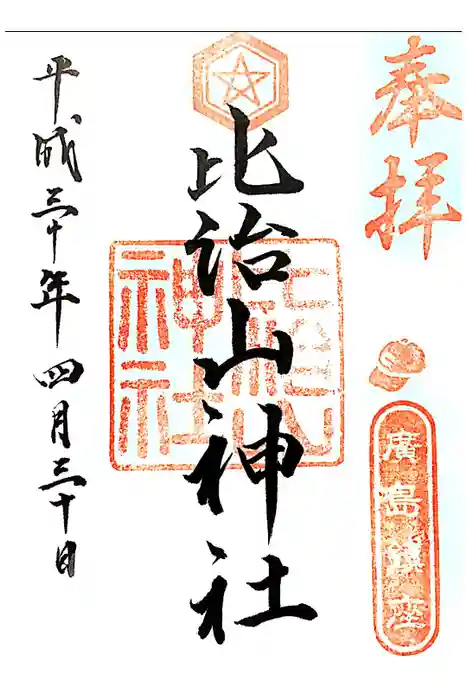 奉拝
廣島鎮座
比治山神社
比治山神社
平成三十年四月三十日